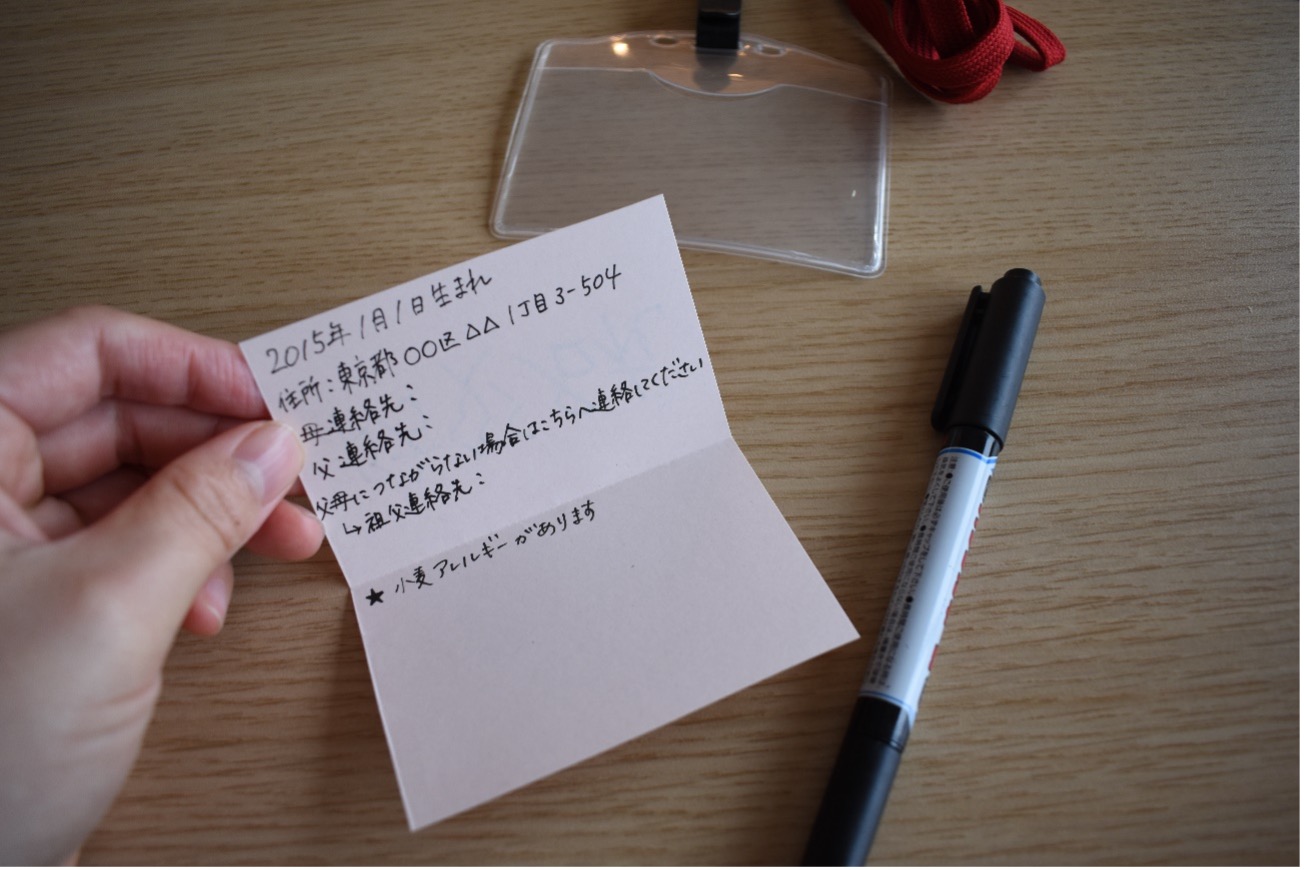 2015年1月1日生まれ
住所:東京都〇〇区△△1丁目3-504
母連絡先:
父連絡先:
父母につながらない場合はこちらへ連絡してください
↳祖父連絡先:
★小麦アレルギーがあります